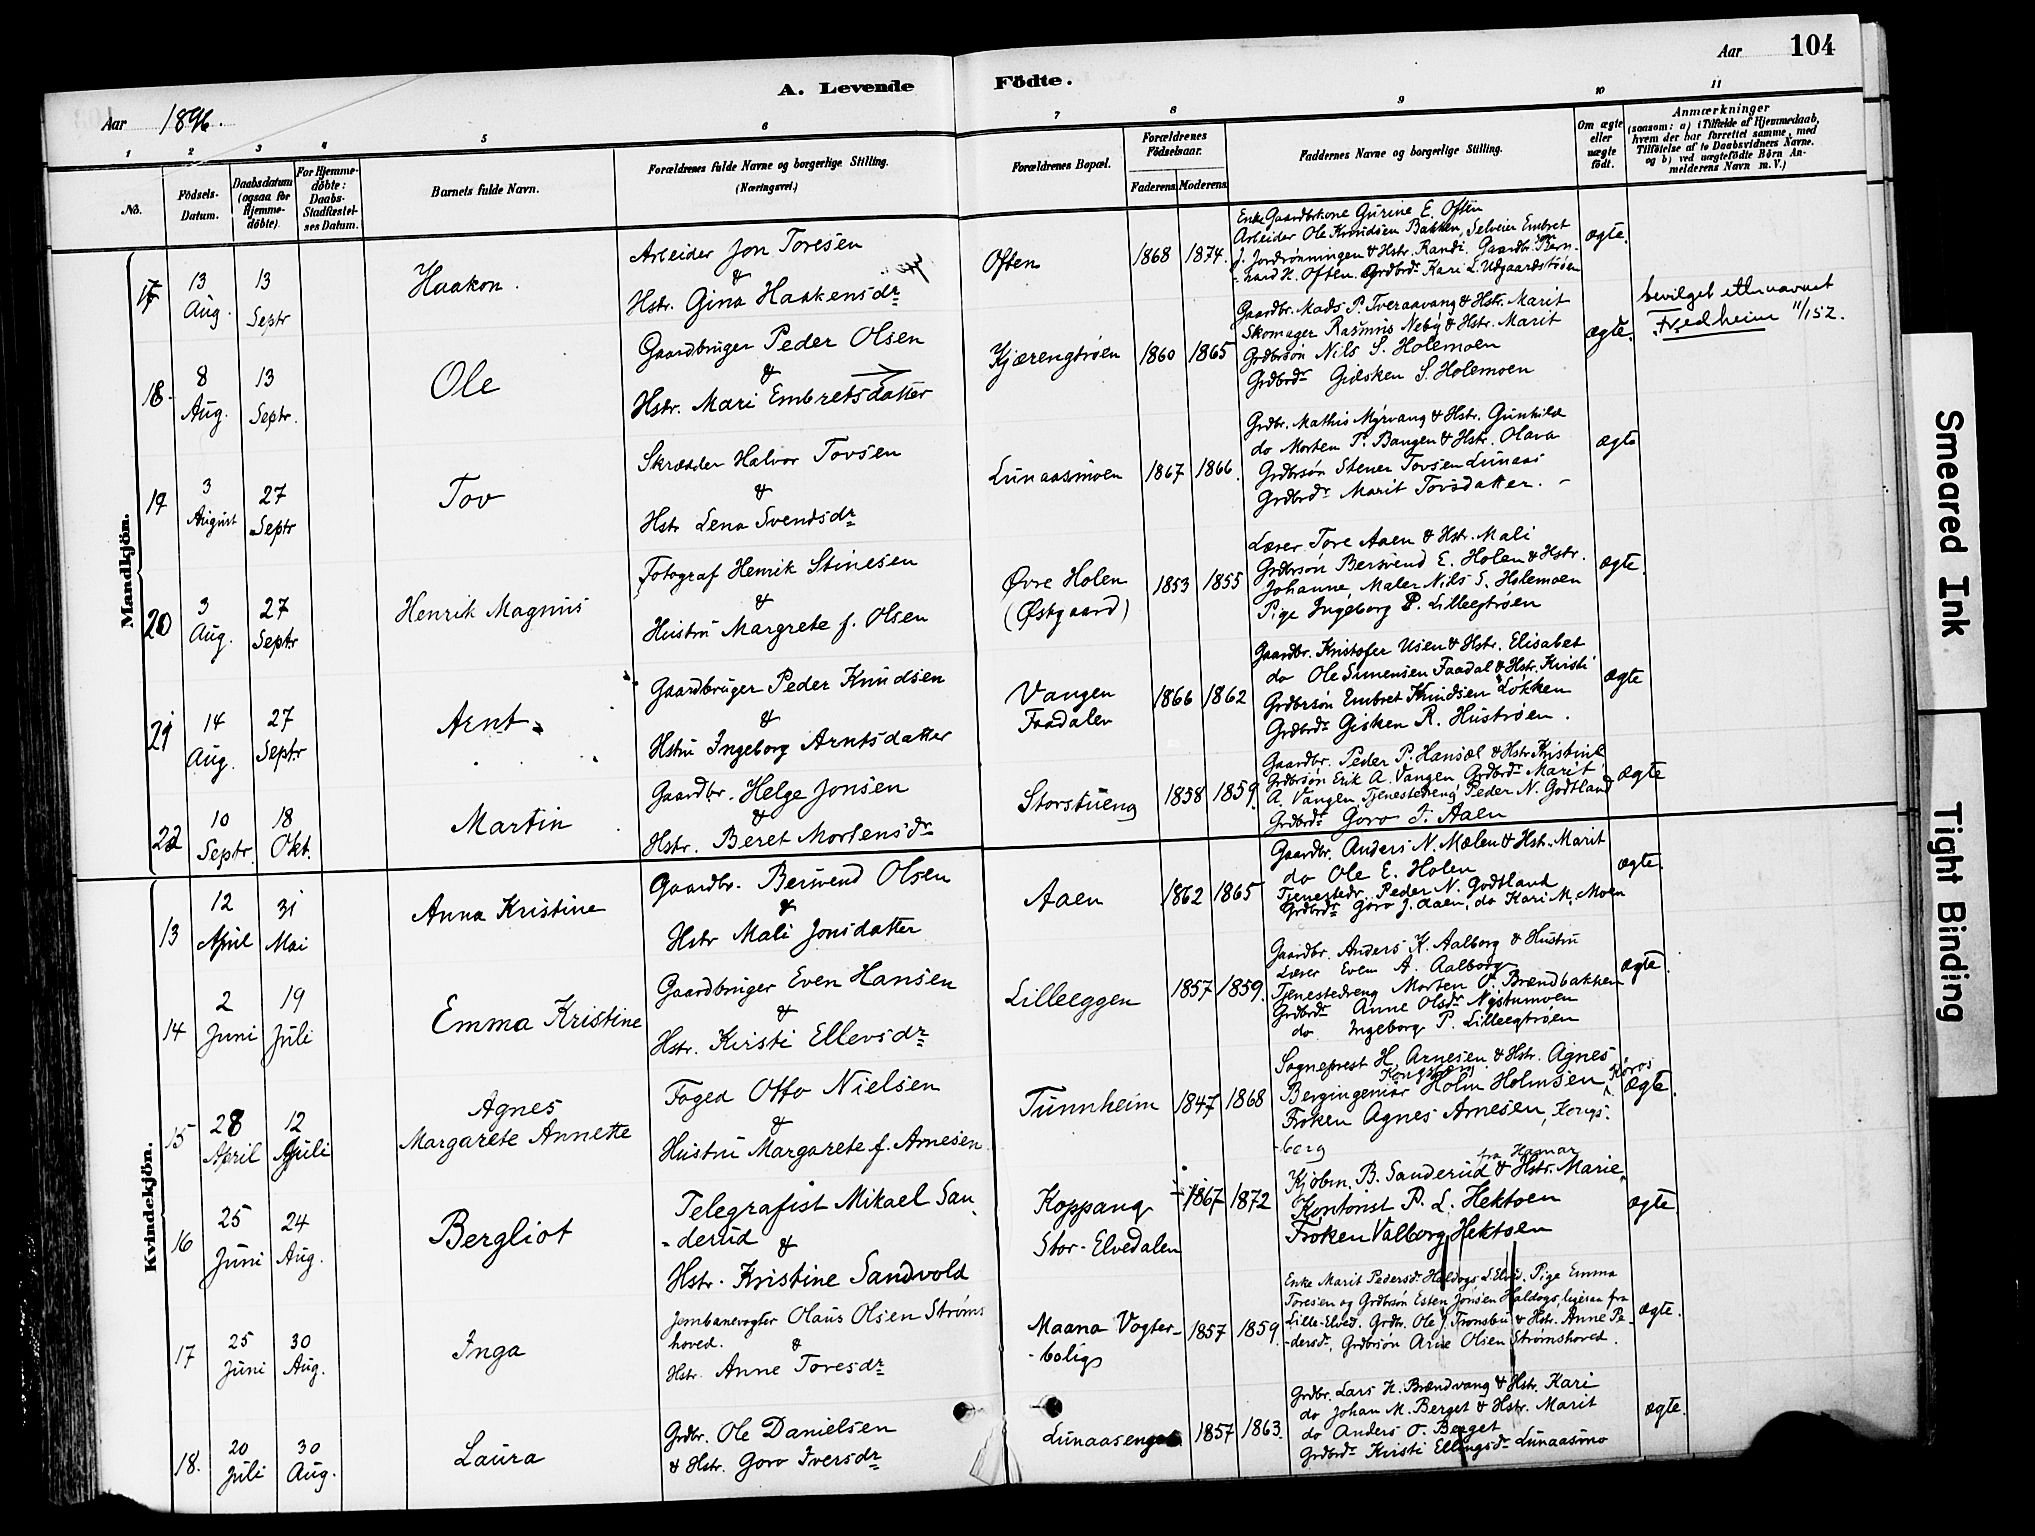 A. Levende Födte.
Aar 104
Aar 1896.
1 2 3 4 5 6 7 8 9 10 11
No.
Födsels-Datum.
Daabsdatum (ogsaa for Hjemme-döbte)
For Hjemme-döbte: Daabs-Stadfæstel-ses Datum.
Barnets fulde Navn.
Forældrenes fulde Navne og borgerlige Stilling. (Næringsvei.)
Forældrenes Bopæl.
Forældrenes Födselsaar.
Faderens Moderens
Faddernes Navne og borgerlige Stilling.
Om ægte eller uægte födt.
Anmærkninger
(saasom: a) i Tilfælde af Hjemmedaab,
hvem der har forrettet samme, med
Tilföielse af to Daabsvidners Navne.
og b) ved uægtefödte Börn An-
melderens Navn m. V.)
Mandkjön.
17 13 Aug. 13 Septr Haakon.
Arbeider Jon Toresen
&
Hstr. Gina Haakensdr
Often 1868 1874.
Enke Gaardbrkone Gurine E. Often
Arbeider Ole Knudsen Bakken, Selveier Embret
J. Jordrönningen & Hstr. Randi. Gaardbr.sön Bern-
-hard H. Often. Grdbrdr Kari L. Udgaardströen
ægte.
18. 8 Aug. 13 Septr. Ole
Gaardbruger Peder Olsen
&
Hstr. Mari Embretsdatter
Kjærengtröen 1860 1865
Gaardbr. Mads P. Tveraavang & Hstr. Marit
Skomager Rasmus Neby & Hstr. Marit
Grdbrsön Nils S. Holemoen
Grdbrdr Gidsken S. Holemoen
ægte.
bevilget etternavnet
Fredheim 11/1 52.
19 3 August 27 Septr Tov
Skrædder Halvor Tovsen
&
Hstr Lena Svendsdr
Lunaasmoen 1867 1866.
Grdbr. Mathis Myrvang & Hstr. Gunhild
do Morten P. Bangen & Hstr. Olava
Grdbrsön Stener Tovsen Lunaas
Grdbrdr Marit Tovsdatter.
ægte
20 3 Aug. 27 Septr Henrik Magnus
Fotograf Henrik Stinesen
&
Hustru Margrete f. Olsen
Øvre Holen
(Østgaard)
1853 1855
Lærer Tore Aaen & Hstr. Mali
Grdbrsön Bersvend E. Holen & Hstr.
Johanne, Maler Nils S. Holemoen
Pige Ingeborg P. Lilleegtröen
ægte.
21 14 Aug. 27 Septr Arnt
Gaardbruger Peder Knudsen
&
Hstru Ingeborg Arntsdatter
Vangen
Faadalen
1866 1862
Gaardbr. Kristofer Usen & Hstr. Elisabet
do Ole Simensen Faadal & Hstr. Kirsti
Grdbrsön Embret Knudsen Løkken
Grdbrdr Gisken R. Hustrøen.
ægte
22 10 Septr. 18 Okt. Martin
Gaardbr. Helge Jonsen
&
Hstr. Beret Mortensdr
Storstueng 1858 1859.
Gaardbr. Peder P. Hansæl & Hstr Kristine
Grdbrsön Erik A. Vangen Grdbrdr Marit
A. Vangen, Tjenestedreng Peder N. Godtland
Grdbrdr Goro J. Aaen
ægte
Kvindekjön.
13 12 April 31 Mai Anna Kristine
Gaardbr. Bersvend Olsen
&
Hstr Mali Jonsdatter
Aaen 1862 1865
Gaardbr. Anders N. Mælen & Hstr. Marit
do Ole E. Holen
Tjenestedr. Peder N. Godtland
Grdbrdr Goro J. Aaen, do Kari M. Moen
ægte.
14 2 Juni 19 Juli Emma Kristine
Gaardbruger Even Hansen
&
Hstr. Kirsti Ellevsdr
Lilleeggen 1857 1859.
Gaardbr. Anders K. Aalborg & Hustru
Lærer Even A. Aalborg
Tjenestedreng Morten O. Brændbakken
Grdbrdr Anne Olsdr Nystumoen
do Ingeborg P. Lilleegtröen
ægte.
15 28 April 12 Juli Agnes
Margarete Annette
Foged Otto Nielsen
&
Hustru Margarete f. Arnesen.
Tunnheim 1847 1868
Sogneprest H. Arnesen & Hstr. Agnes
Kongsberg
Bergingeniør Holm Holmsen, Röros
Frøken Agnes Arnesen, Kongs-
-berg
ægte.
16 25 Juni 24 Aug. Bergliot
Telegrafist Mikael San-
-derud &
Hstr. Kristine Sandvold
Koppang
Stor-Elvedalen
1867 1872
fra Hamar
Kjöbm. B. Sanderud & Hstr. Marie
Kontorist P. L. Hektoen
Frøken Valborg Hektoen
ægte
17 25 Juni 30 Aug. Inga
Jernbanevogter Olaus Olsen Ströms
hoved. &
Hstr. Anne Toresdr
Maana Vogter-
-bolig
1857 1859.
Enke Marit Pedersdr Haldogs L.Elvd. Pige Emma
Toresen og Grdbrsön Esten Jonsen Haldogs, ligesaa fra
Lille-Elved. Grdbr. Ole J. Tronsbu & Hstr. Anne Pe-
-dersdr, Grdbrsön Arne Olsen Strömshoved.
ægte.
18. 20 Juli 30 Aug. Laura
Grdbr. Ole Danielsen
& Hstr. Goro Iversdr
Lunaasenget 1857 1863.
Grdbr. Lars H. Brændvang & Hstr. Kari
do Johan M. Berget & Hstr. Marit
do Anders O. Berget
Grdbrdr Kirsti Ellingsdr Lunaasmo
ægte.
Smeared Ink
Tight Binding